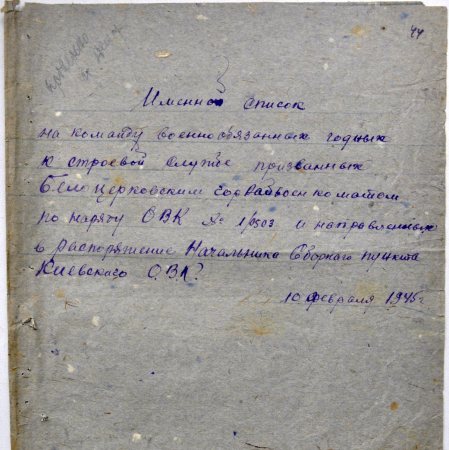 44
Именной список
на команду военнообязанных годных
к строевой службе призванных
Белоцерковским Горрайвоенкоматом
по наряду ОВК № 1/303 и направляемых
в распоряжение Начальника Сборного пункта
Киевского О.В.К.
10 февраля 1945 г